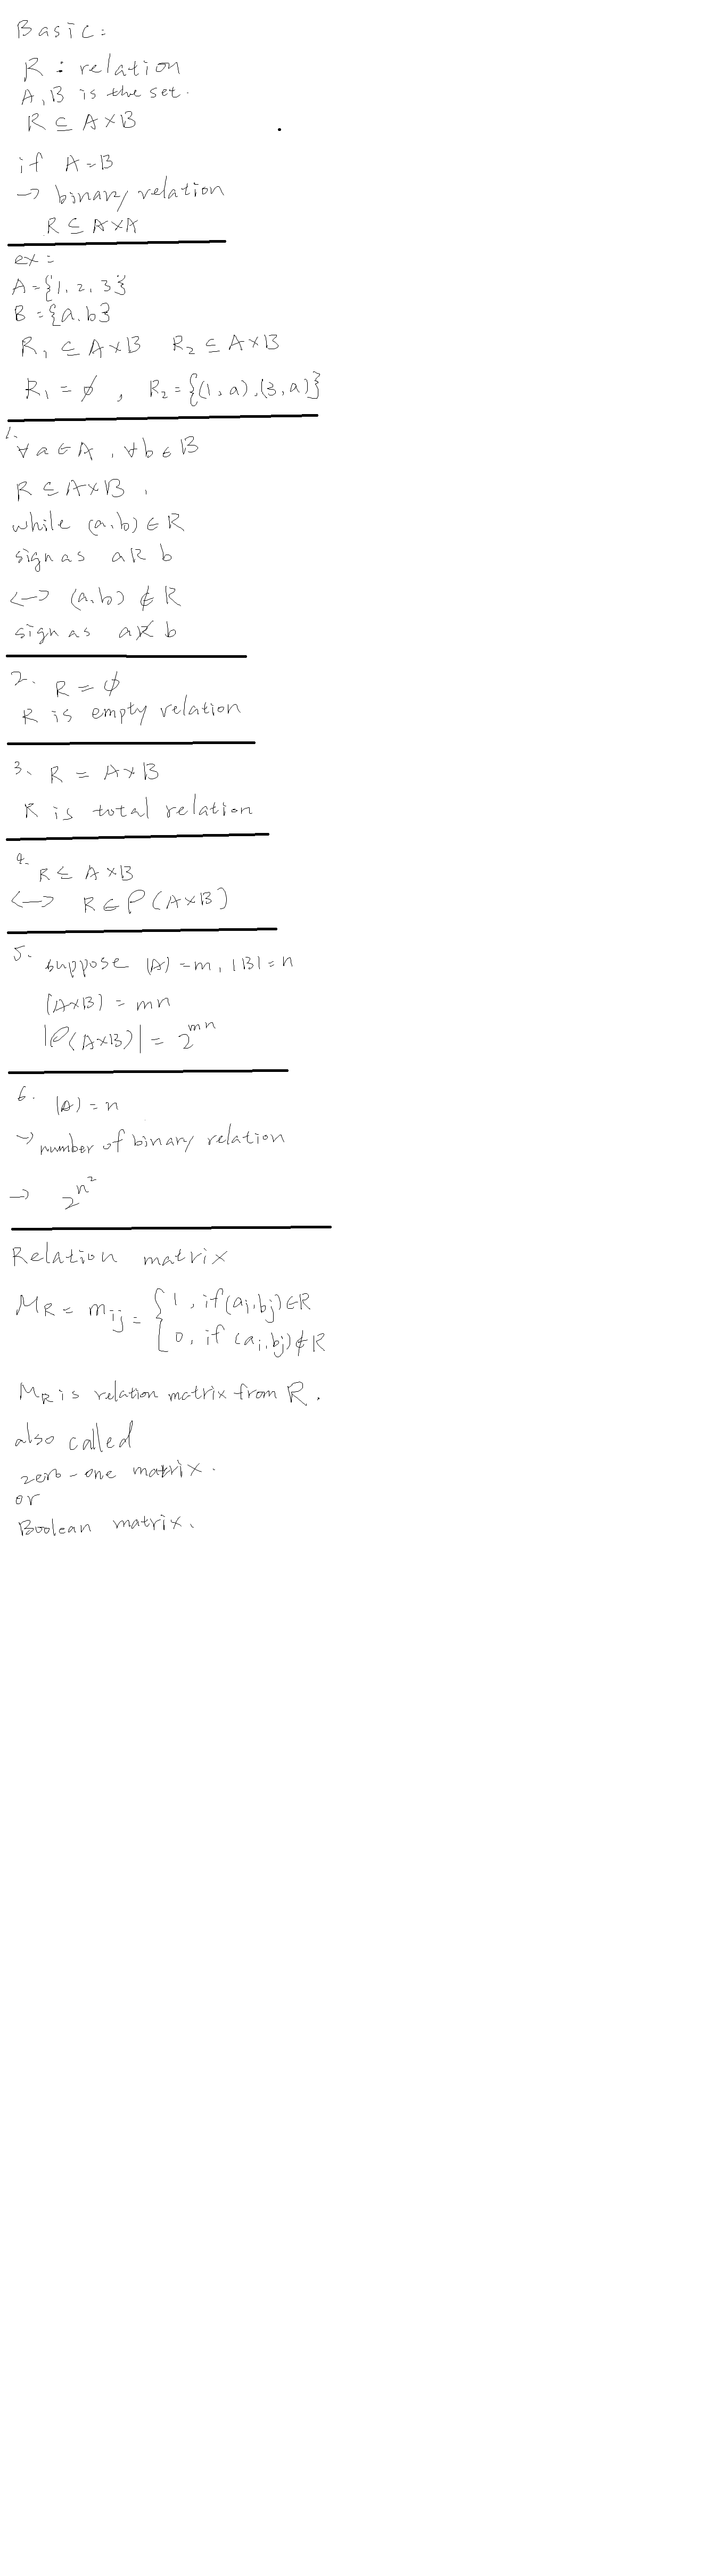 Basic:
R : relation
A, B is the set.
R ⊆ A×B
if A=B
→ binary relation
R ⊆ A×A
ex:
A={1, 2, 3}
B={a, b}
R₁ ⊆ A×B R₂ ⊆ A×B
R₁ = ∅ , R₂={(1, a), (3, a)}
1.
∀a∈A , ∀b∈B
R ⊆ A×B ,
while (a,b) ∈ R
sign as aRb
<-> (a,b) ∉ R
sign as aR̸b
2. R = ∅
R is empty relation
3. R = A×B
R is total relation
4. R ⊆ A×B
<-> R∈P(A×B)
5. suppose |A|=m, |B|=n
|A×B| = mn
|P(A×B)| = 2^mn
6. |A|=n
→ number of binary relation
→ 2^n²
Relation matrix
M_R = m_ij = { 1, if (a_i, b_j)∈R
0, if (a_i, b_j)∉R
M_R is relation matrix from R.
also called
zero-one matrix.
or
Boolean matrix.